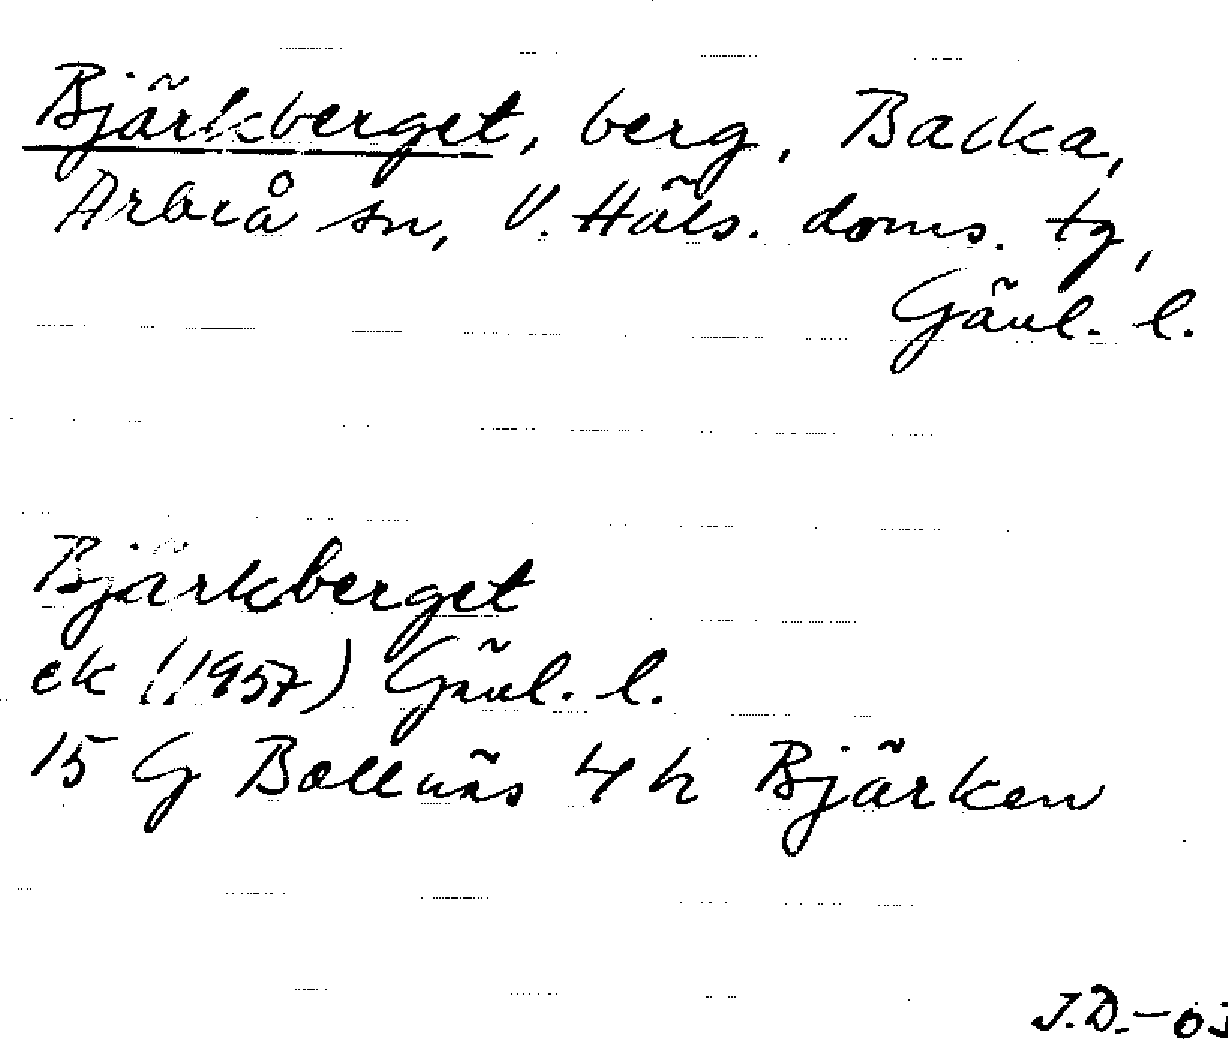 Bjärkberget, berg, Backa,
Arbrå sn, V. Häls. doms. tg,
Gävl. l.
Bjärkberget
ek (1957) Gävl. l.
15 G Bollnäs 4 h Bjärken
J.D.-03